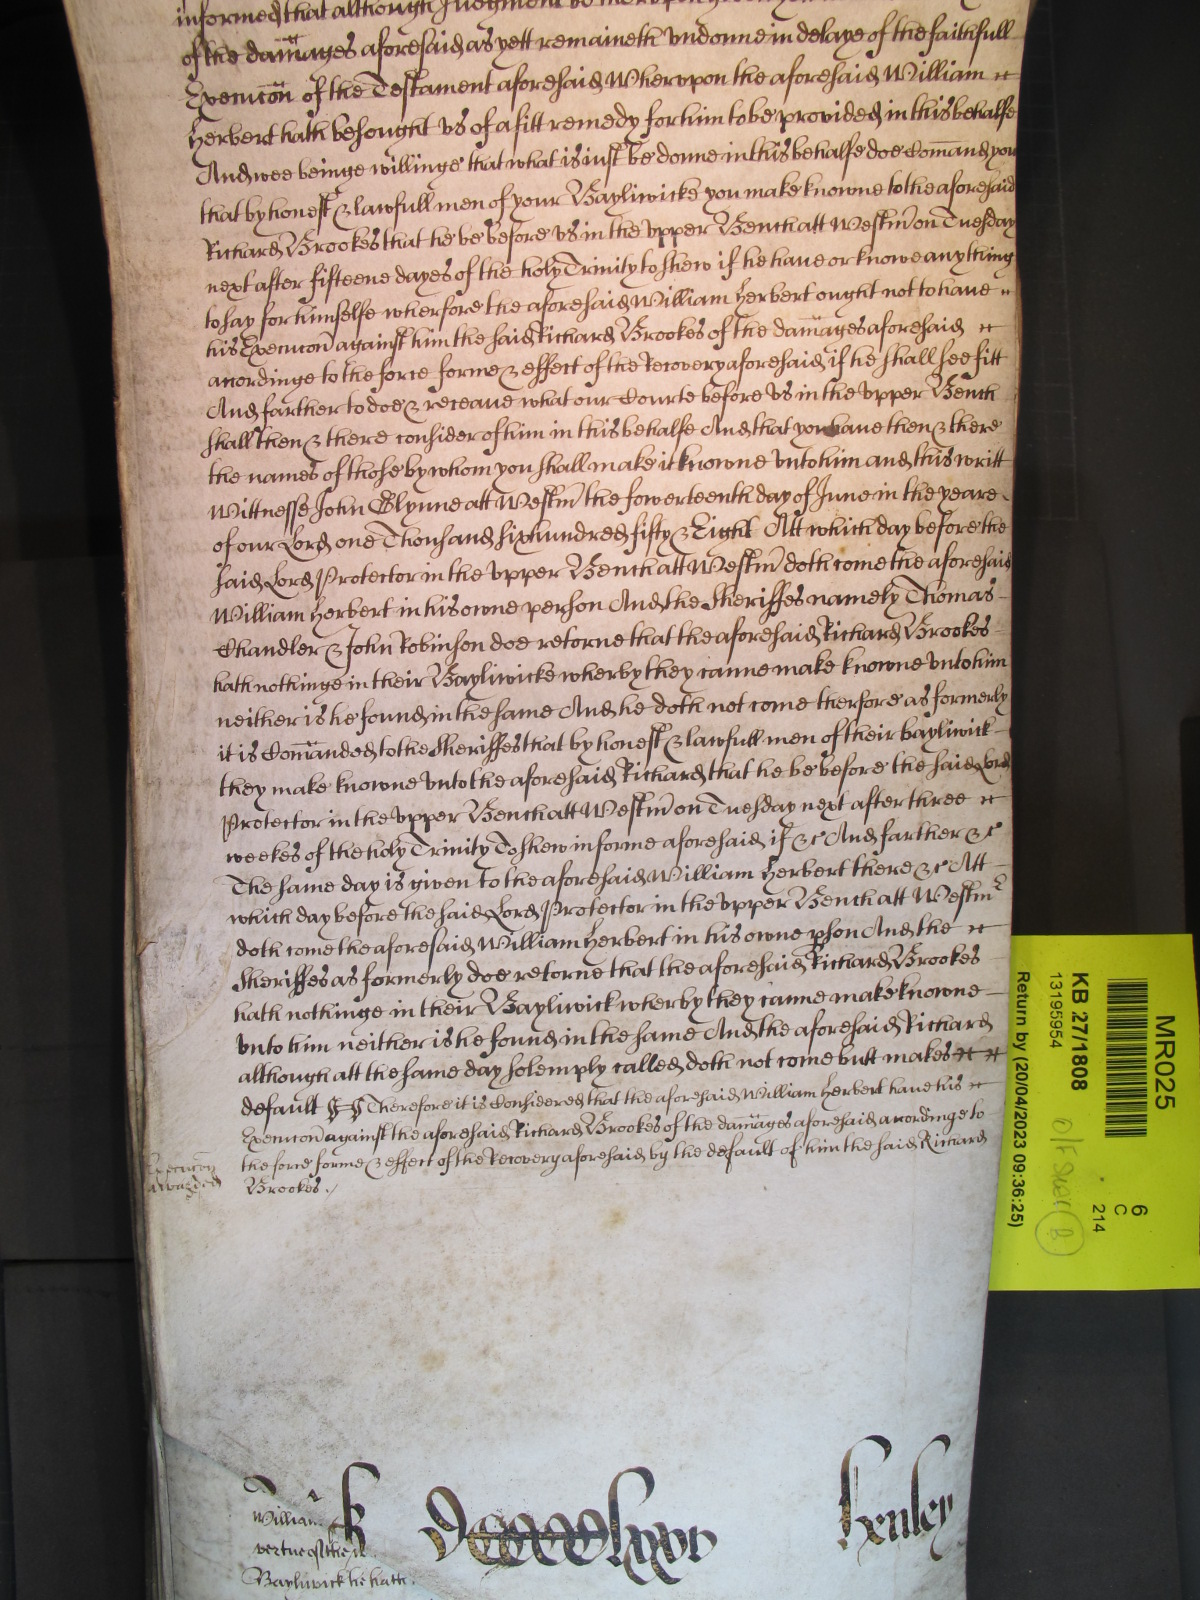 informed that although Judgment be therupon
of the damages aforesaid as yett remaineth undonne in delaye of the faithfull
Execucon of the Testament aforesaid Wherupon the aforesaid William
Herbert hath besought us of a fitt remedy for him to be provided in this behalfe
And wee beinge willinge that what is just be donne in this behalfe doe Comand you
that by honest & lawfull men of your Bayliwicke you make knowne to the aforesaid
Richard Brookes that he be before us in the upper Bench att Westm on Tuesday
next after fifteene dayes of the holy Trinity to shew if he have or knowe any thing
to say for himselfe wherfore the aforesaid William Herbert ought not to have
his Execucon against him the said Richard Brookes of the damages aforesaid
accordinge to the force forme & effect of the Recovery aforesaid if he shall see fitt
And farther to doe & receave what our Courte before us in the upper Bench
shall then & there consider of him in this behalfe And that you have then & there
the names of those by whom you shall make it knowne unto him and this writt
Wittnesse John Glynne att Westm the fowerteenth day of June in the yeare
of our Lord one Thousand six hundred fifty & Eight Att which day before the
said Lord Protector in the upper Bench att Westm doth come the aforesaid
William Herbert in his owne person And the Sheriffes namely Thomas
Chandler & John Robinson doe retorne that the aforesaid Richard Brookes
hath nothinge in their Bayliwicke wherby they canne make knowne unto him
neither is he found in the same And he doth not come therfore as formerly
it is Comanded to the Sheriffes that by honest & lawfull men of their bayliwick
they make knowne unto the aforesaid Richard that he be before the said Lord
Protector in the upper Bench att Westm on Tuesday next after three
weekes of the holy Trinity To shew in forme aforesaid if &c And farther &c
The same day is given to the aforesaid William Herbert there &c Att
which day before the said Lord Protector in the upper Bench att Westm
doth come the aforesaid William Herbert in his owne pson And the
Sheriffes as formerly doe retorne that the aforesaid Richard Brookes
hath nothinge in their Bayliwick wherby they canne make knowne
unto him neither is he found in the same And the aforesaid Richard
although att the same day solemply called doth not come butt makes
default Therefore it is Considered that the aforesaid William Herbert have his
Execucon against the aforesaid Richard Brookes of the damages aforesaid accordinge to
the force forme & effect of the Recovery aforesaid by the default of him the said Richard
Brookes
Execucon
awarded
William
vertue of the
Bayliwick he hath
Henley
MR025
6
C
214
KB 27/1808
13195954
Return by (20/04/2023 09:36:25)